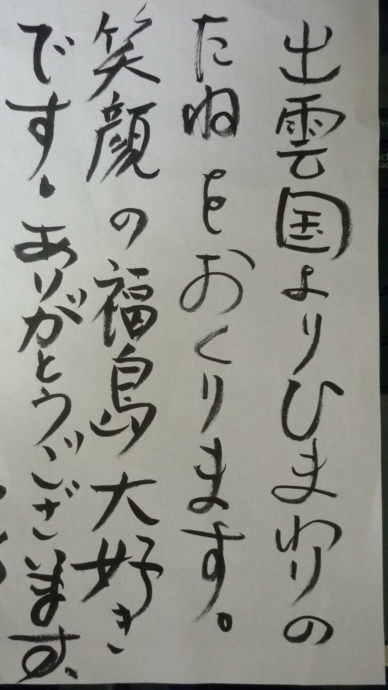 出雲国よりひまわりの
たねをおくります。
笑顔の福島大好き
です。ありがとうございます、